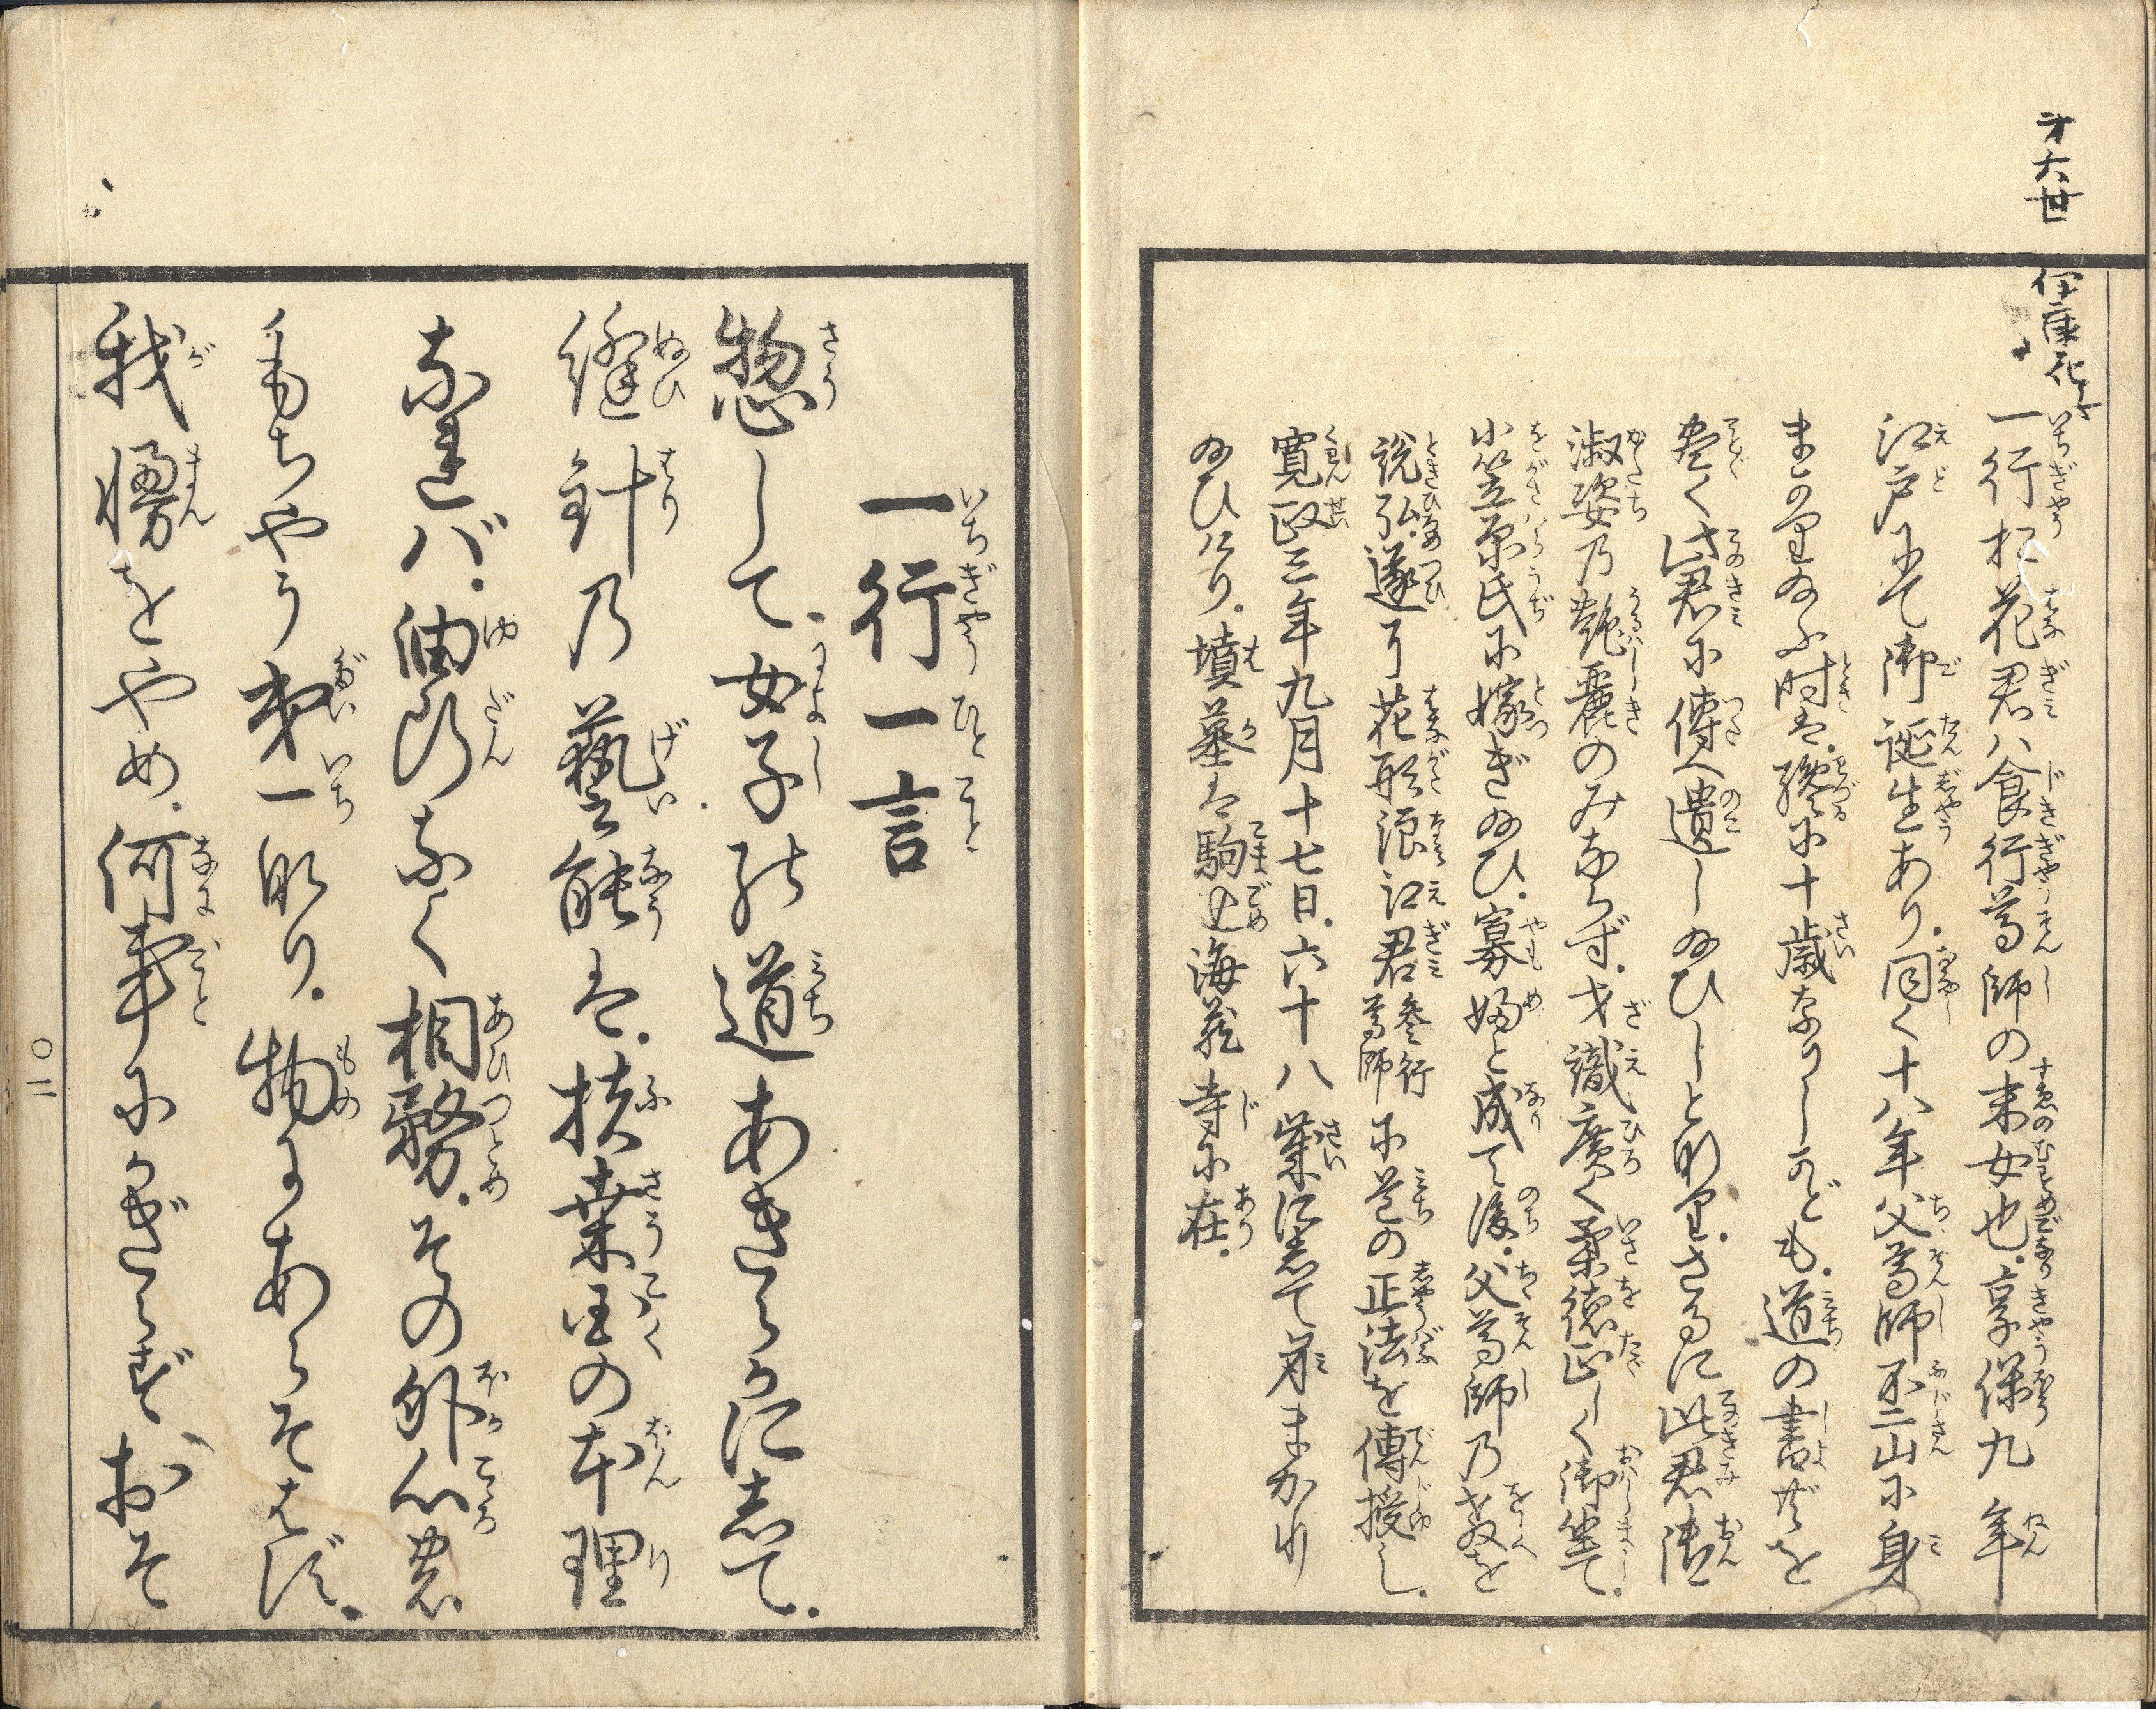 才六世　伊藤花子
一行お花君ハ食行尊師の末女也。享保九年
江戸にて御誕生あり。同く十八年父尊師不二山に身
まかり給ふ時は。纔に十歳なりしかども。道の書共を
尽く此君に傳へ遺し給ひしと也。さるに此君御
淑姿乃艶麗のみならず。才識廣く柔徳正しく御坐て。
小笠原氏に嫁ぎ給ひ。寡婦と成て後。父尊師乃教を
説弘。遂に花形浪江君参行尊師に道の正法を傳授し。
寛政三年九月十七日。六十八歳にて身まかり
給ひけり。墳墓は駒込海蔵寺に在。
一行一言
惣して。女子の道あきらかにして。
縫針乃藝能は。扶桒国の本理
なれバ。油断なく相務。その外心農
もちやう第一なり。物にあらそはず。
我慢をやめ。何事にかぎらずおそ
〇二